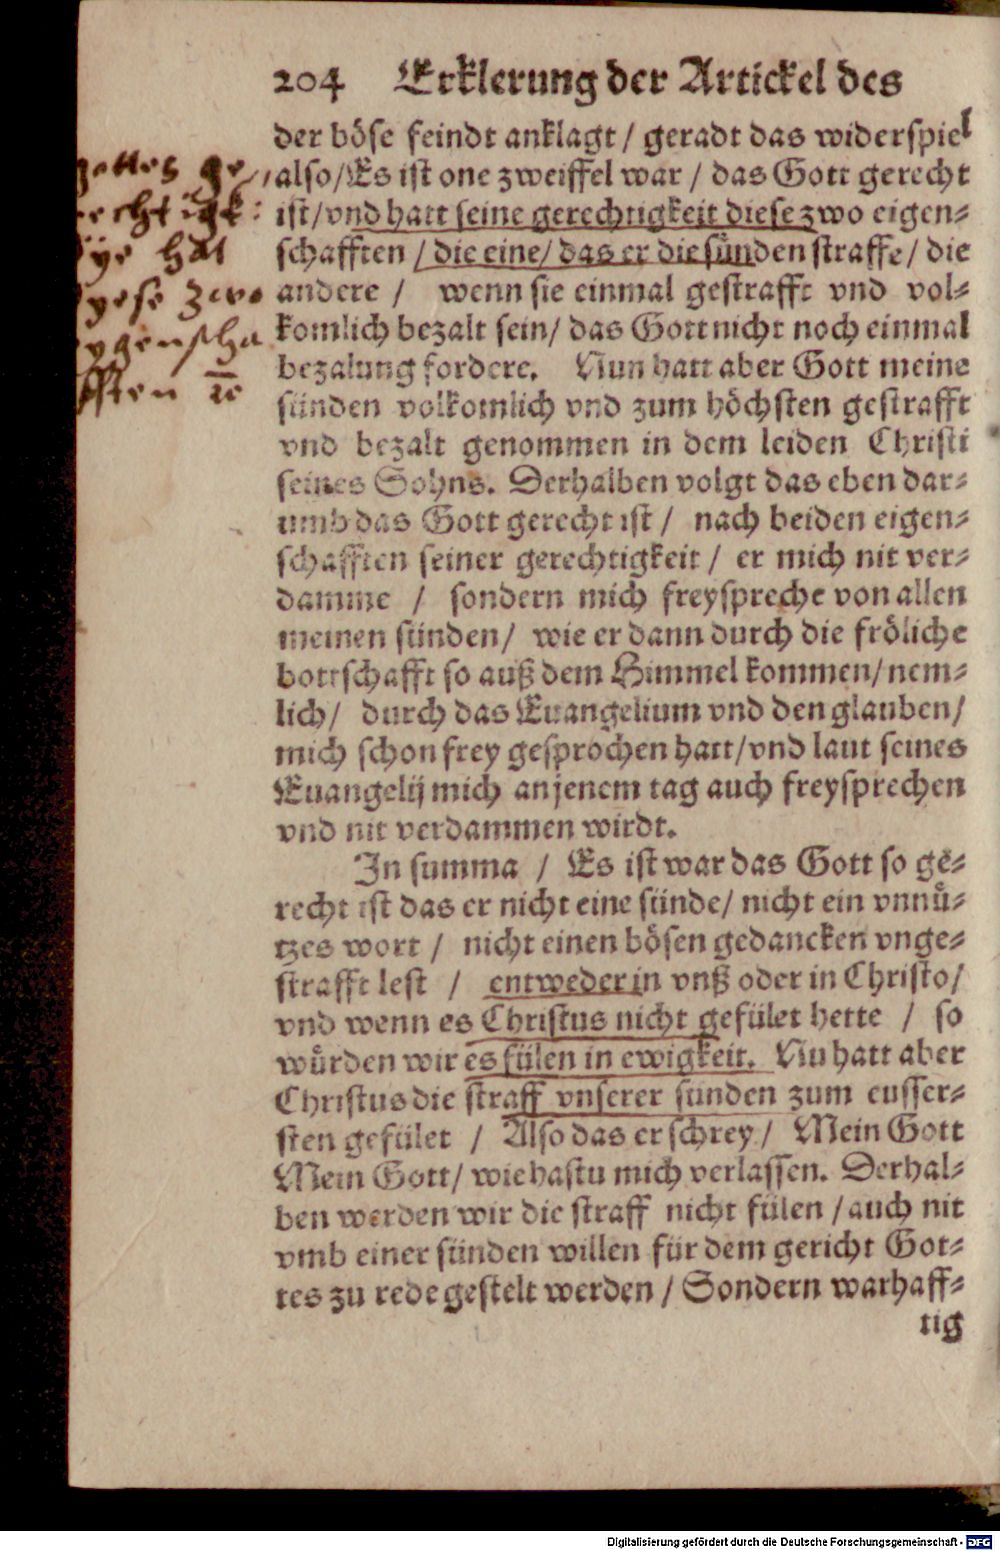 204 Erklerung der Artickel des
der böse feindt anklagt / geradt das widerspiel
also/Es ist one zweiffel war / das Gott gerecht
ist/vnd hatt seine gerechtigkeit diese zwo eigen-
schafften / die eine/ das er die sünden straffe/ die
andere / wenn sie einmal gestrafft vnd vol-
komlich bezalt sein/ das Gott nicht noch einmal
bezalung fordere. Nun hatt aber Gott meine
sünden volkomlich vnd zum höchsten gestrafft
vnd bezalt genommen in dem leiden Christi
seines Sohns. Derhalben volgt das eben dar-
umb das Gott gerecht ist / nach beiden eigen-
schafften seiner gerechtigkeit / er mich nit ver-
damme / sondern mich freyspreche von allen
meinen sünden/ wie er dann durch die fröliche
bottschafft so auß dem Himmel kommen/ nem-
lich/ durch das Euangelium vnd den glauben/
mich schon frey gesprochen hatt/vnd laut seines
Euangelij mich an jenem tag auch freysprechen
vnd nit verdammen wirdt.
In summa / Es ist war das Gott so ge-
recht ist das er nicht eine sünde/ nicht ein vnnü-
tzes wort / nicht einen bösen gedancken vnge-
strafft lest / entweder in vnß oder in Christo/
vnd wenn es Christus nicht gefület hette / so
würden wir es fülen in ewigkeit. Nu hatt aber
Christus die straff vnserer sünden zum eusser-
sten gefület / Also das er schrey / Mein Gott
Mein Gott/ wie hastu mich verlassen. Derhal-
ben werden wir die straff nicht fülen / auch nit
vmb einer sünden willen für dem gericht Got-
tes zu rede gestelt werden / Sondern warhaff-
tig
gottes ge
rechtigk:
dye hat
dyese zwo
eygenscha
fften
Digitalisierung gefördert durch die Deutsche Forschungsgemeinschaft - DFG